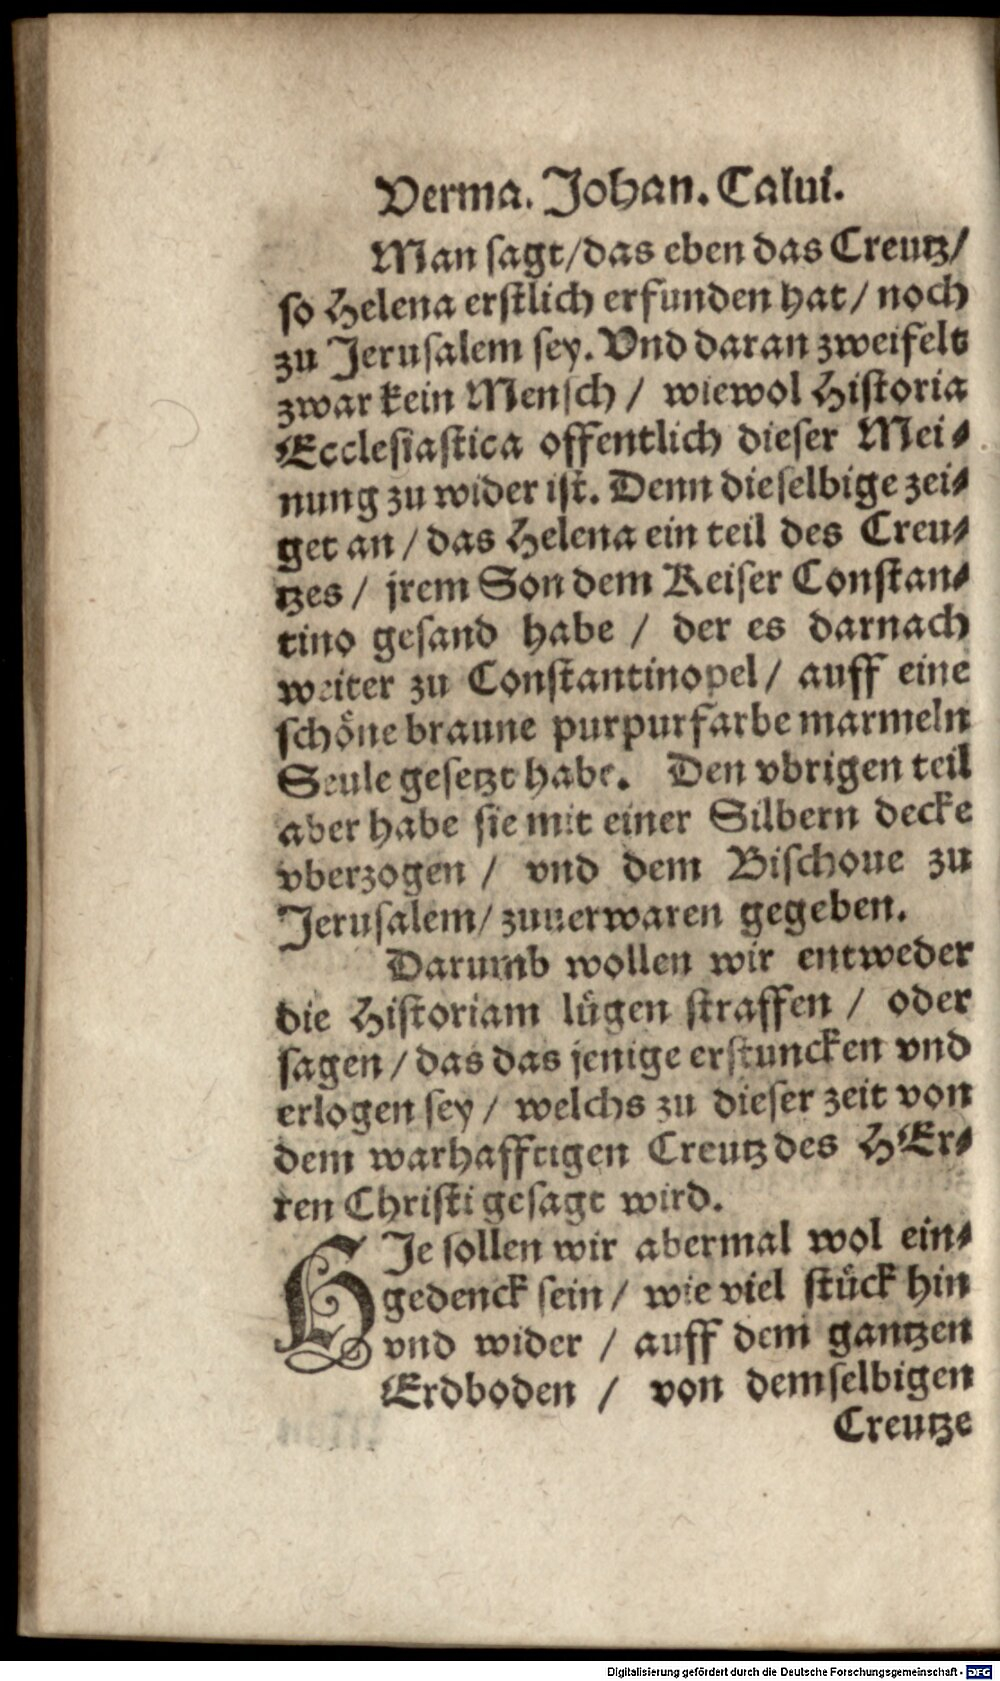 Verma. Johan. Calui.
Man sagt/das eben das Creutz/
so Helena erstlich erfunden hat/ noch
zu Jerusalem sey. Vnd daran zweifelt
zwar kein Mensch / wiewol Historia
Ecclesiastica offentlich dieser Mei⸗
nung zu wider ist. Denn dieselbige zei⸗
get an / das Helena ein teil des Creu⸗
tzes / jrem Son dem Keiser Constan⸗
tino gesand habe / der es darnach
weiter zu Constantinopel/ auff eine
schöne braune purpurfarbe marmeln
Seule gesetzt habe. Den vbrigen teil
aber habe sie mit einer Silbern decke
vberzogen / vnd dem Bischoue zu
Jerusalem/ zuuerwaren gegeben.
Darumb wollen wir entweder
die Historiam lügen straffen / oder
sagen / das das jenige erstuncken vnd
erlogen sey / welchs zu dieser zeit von
dem warhafftigen Creutz des HEr⸗
ren Christi gesagt wird.
HJe sollen wir abermal wol ein⸗
gedenck sein / wie viel stück hin
vnd wider / auff dem gantzen
Erdboden / von demselbigen
Creutze
Digitalisierung gefördert durch die Deutsche Forschungsgemeinschaft - DFG